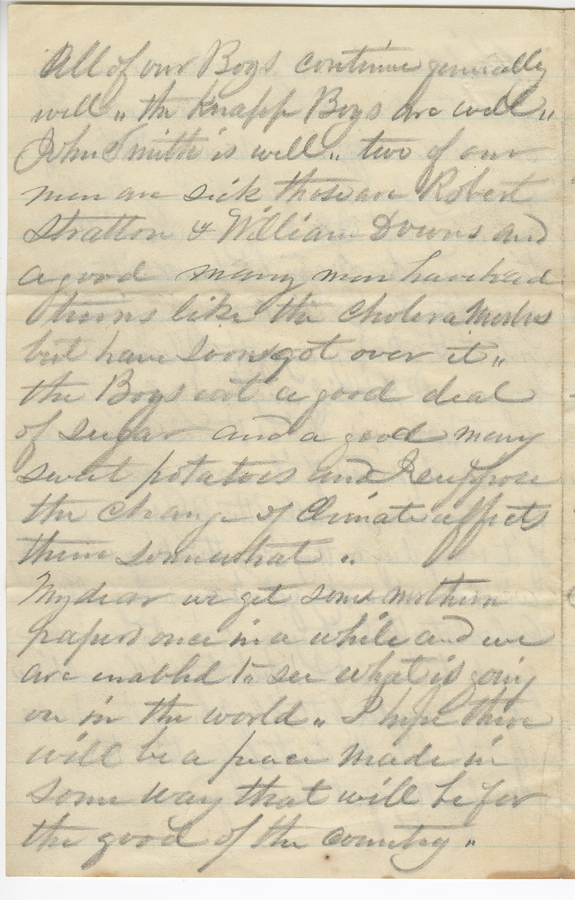 All of our Boys continue generally
well " the Knapp Boys are well "
John Smith is well " two of our
men are sick those are Robert
Stratton & William Downs and
a good many men have had
turns like the Cholera Morbus
but have soon got over it "
the Boys eat a good deal
of sugar and a good many
sweet potatoes and I suppose
the change of Climate affects
them somewhat "
My dear we get some northern
papers once in a while and we
are enabled to see what is going
on in the world " I hope there
will be a peace made in
some way that will be for
the good of the country "